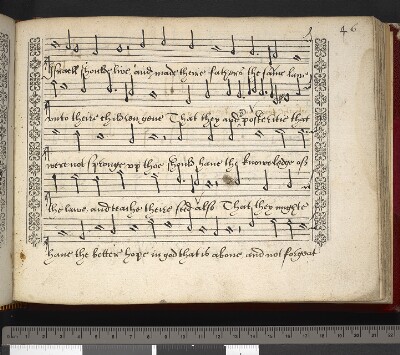 46
Israell should live and made theire fathers the same law
unto theire children gene That they and posteritie that
were not spronge up thoe should have the knowledge of
the lawe and teache theire seed also That they mighte
have the better hope in god that is above and not forgeat